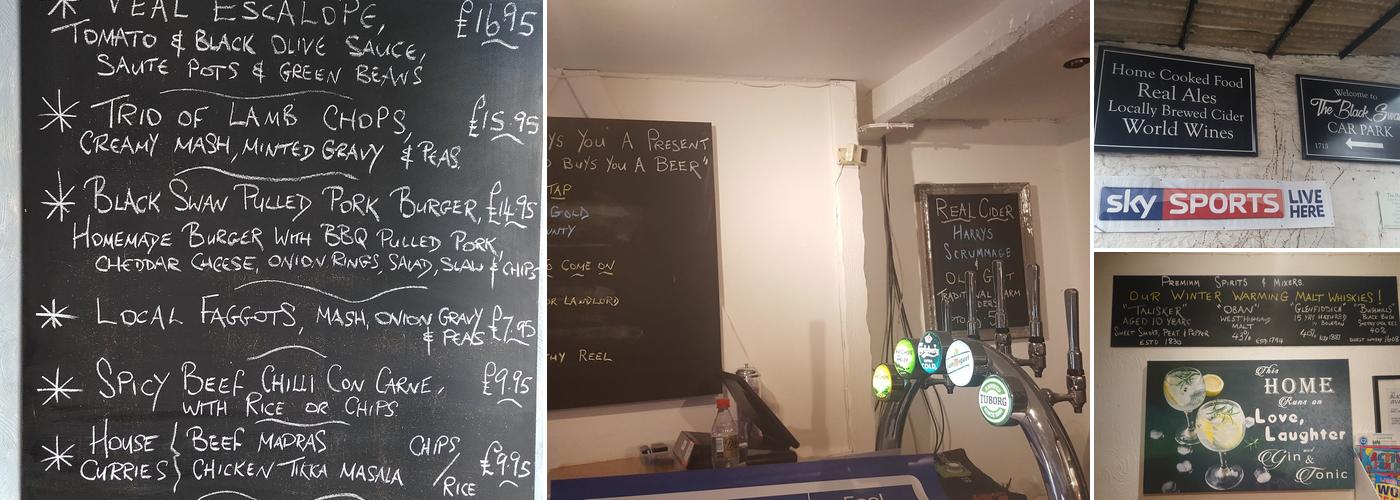 * VEAL ESCALOPE, £16.95
TOMATO & BLACK OLIVE SAUCE,
SAUTE POTS & GREEN BEANS
* TRIO OF LAMB CHOPS, £15.95
CREAMY MASH, MINTED GRAVY & PEAS.
* BLACK SWAN PULLED PORK BURGER, £14.95
HOMEMADE BURGER WITH BBQ PULLED PORK,
CHEDDAR CHEESE, ONION RINGS, SALAD, SLAW & CHIPS
* LOCAL FAGGOTS, MASH, ONION GRAVY
& PEAS £7.95
* SPICY BEEF CHILLI CON CARNE, £9.95
WITH RICE OR CHIPS
* HOUSE CURRIES } BEEF MADRAS CHIPS/RICE £9.95
CHICKEN TIKKA MASALA
YS YOU A PRESENT
BUYS YOU A BEER"
TAP
GOLD
UNTY
TO COME ON
OR LANDLORD
HY REEL
REAL CIDER
HARRYS
SCRUMMAGE
TUBORG
COLD
Home Cooked Food
Real Ales
Locally Brewed Cider
World Wines
Welcome to
The Black Swa
CAR PARK
1715
sky SPORTS LIVE
HERE
PREMIUM SPIRITS & MIXERS.
OUR WINTER WARMING MALT WHISKIES!
"TALISKER" "OBAN" "GLENFIDDICH" "BUSHMILLS"
AGED 10 YEARS WEST HIGHLAND 15 YRS MATURED BLACK BUSH
SWEET SMOKE, PEAT & PEPPER MALT IN BOURBON
ESTD 1830 43% ESTD 1794 40% 40%
This
HOME
Runs on
Love,
Laughter
and
Gin &
Tonic